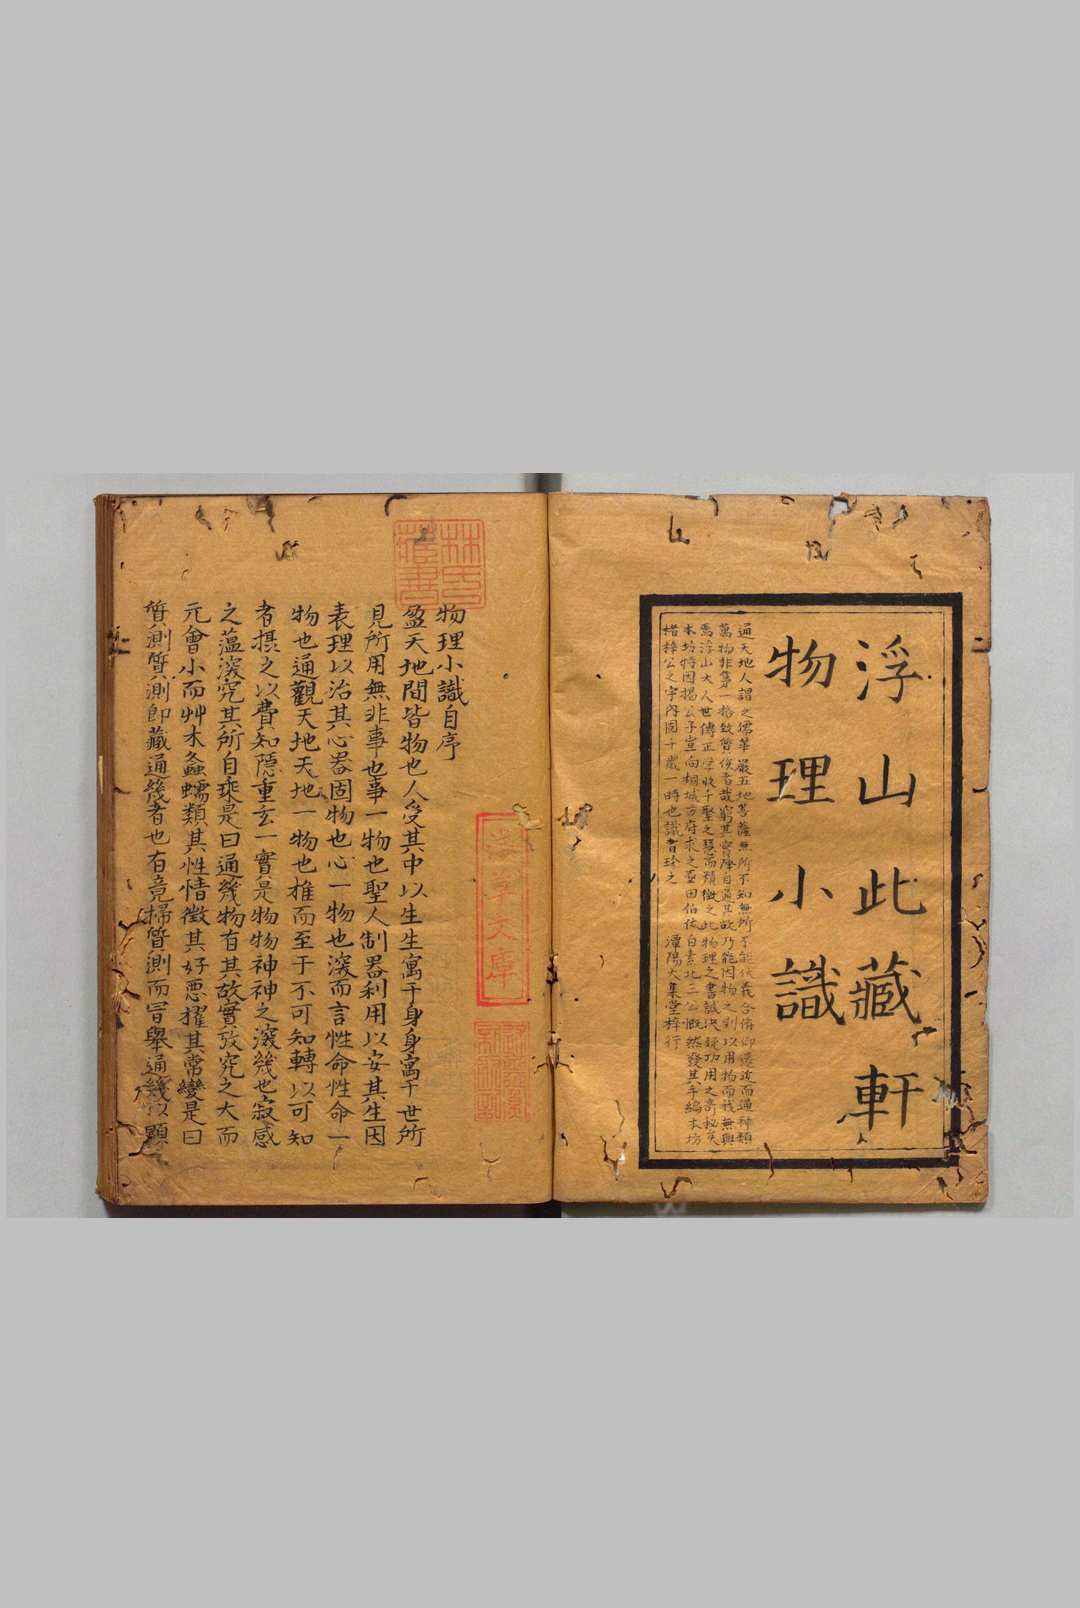 浮山此藏軒
物理小識
通天地人謂之儒華嚴五地菩薩無所不知無所不能伏羲合俯仰遠近而通神類
萬物非隻一格致質俟者哉窮其實際自通其故乃能因物之則以用物而我無與
焉浮山大人世傳正學收千聖之慧而頻徵之此物理之書誠決疑功用之奇秘矣
本坊特因揭公子宣向桐城方府求之並田伯位白素北三公慨然發其手編本坊
楮梓公之宇內固千歲一時也識者珍之 潭陽大集堂梓行
物理小識自序
盈天地間皆物也人受其中以生生寓于身身寓于世所
見所用無非事也事一物也聖人制器利用以安其生因
表理以治其心器固物也心一物也深而言性命性命一
物也通觀天地天地一物也推而至于不可知轉以可知
者攝之以費知隱重玄一實是物物神神之深幾也寂感
之蘊深究其所自來是曰通幾物有其故實攷究之大而
元會小而艸木蟲蠕類其性情徵其好惡擢其常變是曰
質測質測即藏通幾者也有竟掃質測而冒舉通幾以顯
林氏藏書
淺草文庫